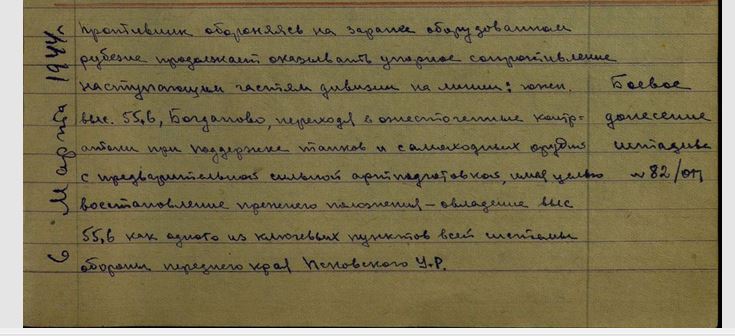 6 Марта 1944 г.
Противник обороняясь на заранее оборудованном
рубеже продолжает оказывать упорное сопротивление
наступающим частям дивизии на линии: южн.
выс. 55,6, Богданово, переходя в ожесточенные контр-
атаки при поддержке танков и самоходных орудий
с предварительной сильной артподготовкой, имея целью
восстановление прежнего положения – овладение выс
55,6 как одного из ключевых пунктов всей системы
обороны переднего края Псковского У.Р.
Боевое
донесение
штадива
№ 82/оп